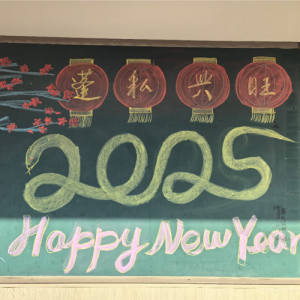 蓬私兴旺
2025
Happy New Year